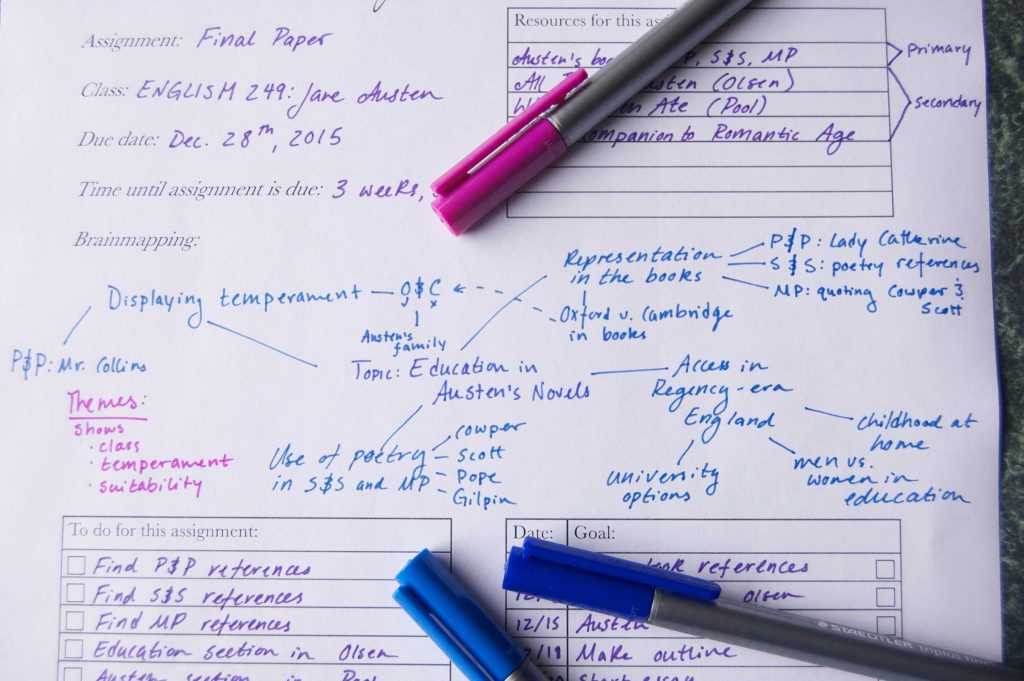 Assignment: Final Paper
Class: ENGLISH 249: Jane Austen
Due date: Dec. 28th, 2015
Time until assignment is due: 3 weeks,
Resources for this
Austen's P, S&S, MP
All (Olsen)
Ate (Pool)
Companion to Romantic Age
Primary
Secondary
Brainmapping:
Representation
in the books
P&P: Lady Catherine
S&S: poetry references
MP: quoting Cowper &
Scott
Displaying temperament
O & C
Austen's
family
Oxford v. Cambridge
in books
P&P: Mr. Collins
Topic: Education in
Austen's Novels
Access in
Regency-era
England
childhood at
home
men vs.
women in
education
university
options
Use of poetry
in S&S and MP
Cowper
Scott
Pope
Gilpin
Themes:
shows
· class
· temperament
· suitability
To do for this assignment:
Find P&P references
Find S&S references
Find MP references
Education section in Olsen
Austen section in Pool
Date: Goal:
references
Olsen
12/15 Austen
Make outline
Start essay
STAEDTLER triplus